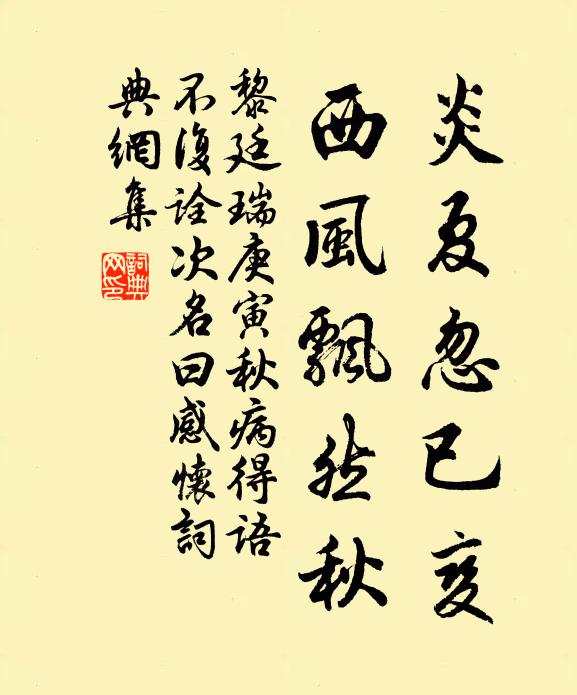 炎夏忽已变
西風飄然秋
黎廷瑞庚寅秋病得语
不復诠次名曰感懷詞
典網集
詞典网印